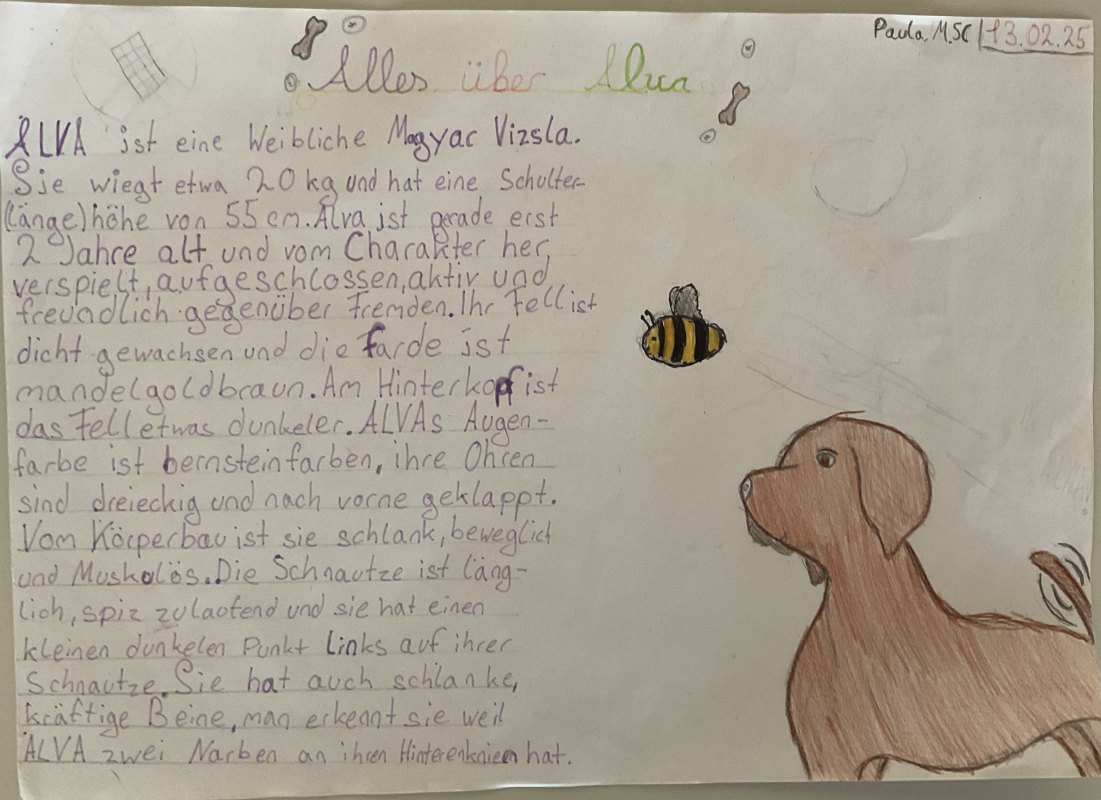 Paula. M.5C | 13.02.25
Alles über Alva
ALVA ist eine Weibliche Magyar Vizsla.
Sie wiegt etwa 20 kg und hat eine Schulter-
(länge) höhe von 55 cm. Alva ist gerade erst
2 Jahre alt und vom Charakter her,
verspielt, aufgeschlossen, aktiv und
freundlich gegenüber Fremden. Ihr Fell ist
dicht gewachsen und die Farbe ist
mandelgoldbraun. Am Hinterkopf ist
das Fell etwas dunkeler. ALVAs Augen-
farbe ist bernsteinfarben, ihre Ohren
sind dreieckig und nach vorne geklappt.
Vom Körperbau ist sie schlank, beweglich
und Muskolös. Die Schnautze ist läng-
lich, spiz zulaufend und sie hat einen
kleinen dunkelen Punkt links auf ihrer
Schnautze. Sie hat auch schlanke,
kräftige Beine, man erkennt sie weil
ALVA zwei Narben an ihren Hinterenknien hat.